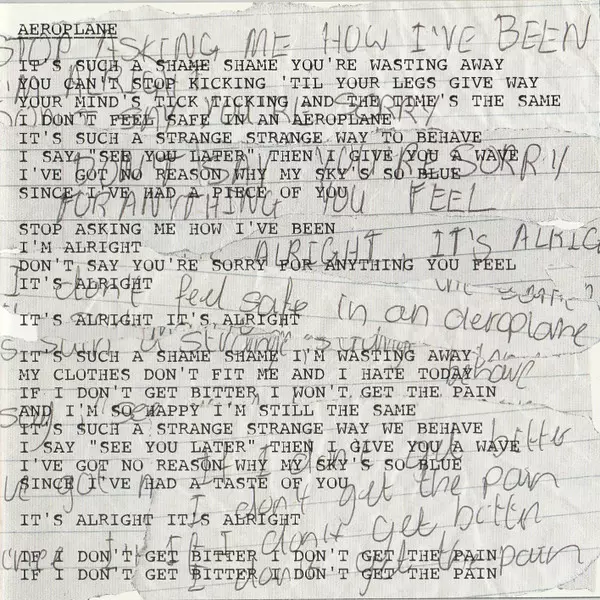 AEROPLANE
IT'S SUCH A SHAME SHAME YOU'RE WASTING AWAY
YOU CAN'T STOP KICKING 'TIL YOUR LEGS GIVE WAY
YOUR MIND'S TICK TICKING AND THE TIME'S THE SAME
I DON'T FEEL SAFE IN AN AEROPLANE
IT'S SUCH A STRANGE STRANGE WAY TO BEHAVE
I SAY "SEE YOU LATER" THEN I GIVE YOU A WAVE
I'VE GOT NO REASON WHY MY SKY'S SO BLUE
SINCE I'VE HAD A PIECE OF YOU
STOP ASKING ME HOW I'VE BEEN
I'M ALRIGHT
DON'T SAY YOU'RE SORRY FOR ANYTHING YOU FEEL
IT'S ALRIGHT
IT'S ALRIGHT IT'S ALRIGHT
IT'S SUCH A SHAME SHAME I'M WASTING AWAY
MY CLOTHES DON'T FIT ME AND I HATE TODAY
IF I DON'T GET BITTER I WON'T GET THE PAIN
AND I'M SO HAPPY I'M STILL THE SAME
IT'S SUCH A STRANGE STRANGE WAY WE BEHAVE
I SAY "SEE YOU LATER" THEN I GIVE YOU A WAVE
I'VE GOT NO REASON WHY MY SKY'S SO BLUE
SINCE I'VE HAD A TASTE OF YOU
IT'S ALRIGHT IT'S ALRIGHT
IF I DON'T GET BITTER I DON'T GET THE PAIN
IF I DON'T GET BITTER I DON'T GET THE PAIN
STOP ASKING ME HOW I'VE BEEN
SORRY
YOU'RE SORRY
FOR ANYTHING YOU FEEL
ALRIGHT IT'S
I don't feel safe in an aeroplane
behave
If I don't get bitter
I don't get the pain
If I don't get bitter
I don't get the pain